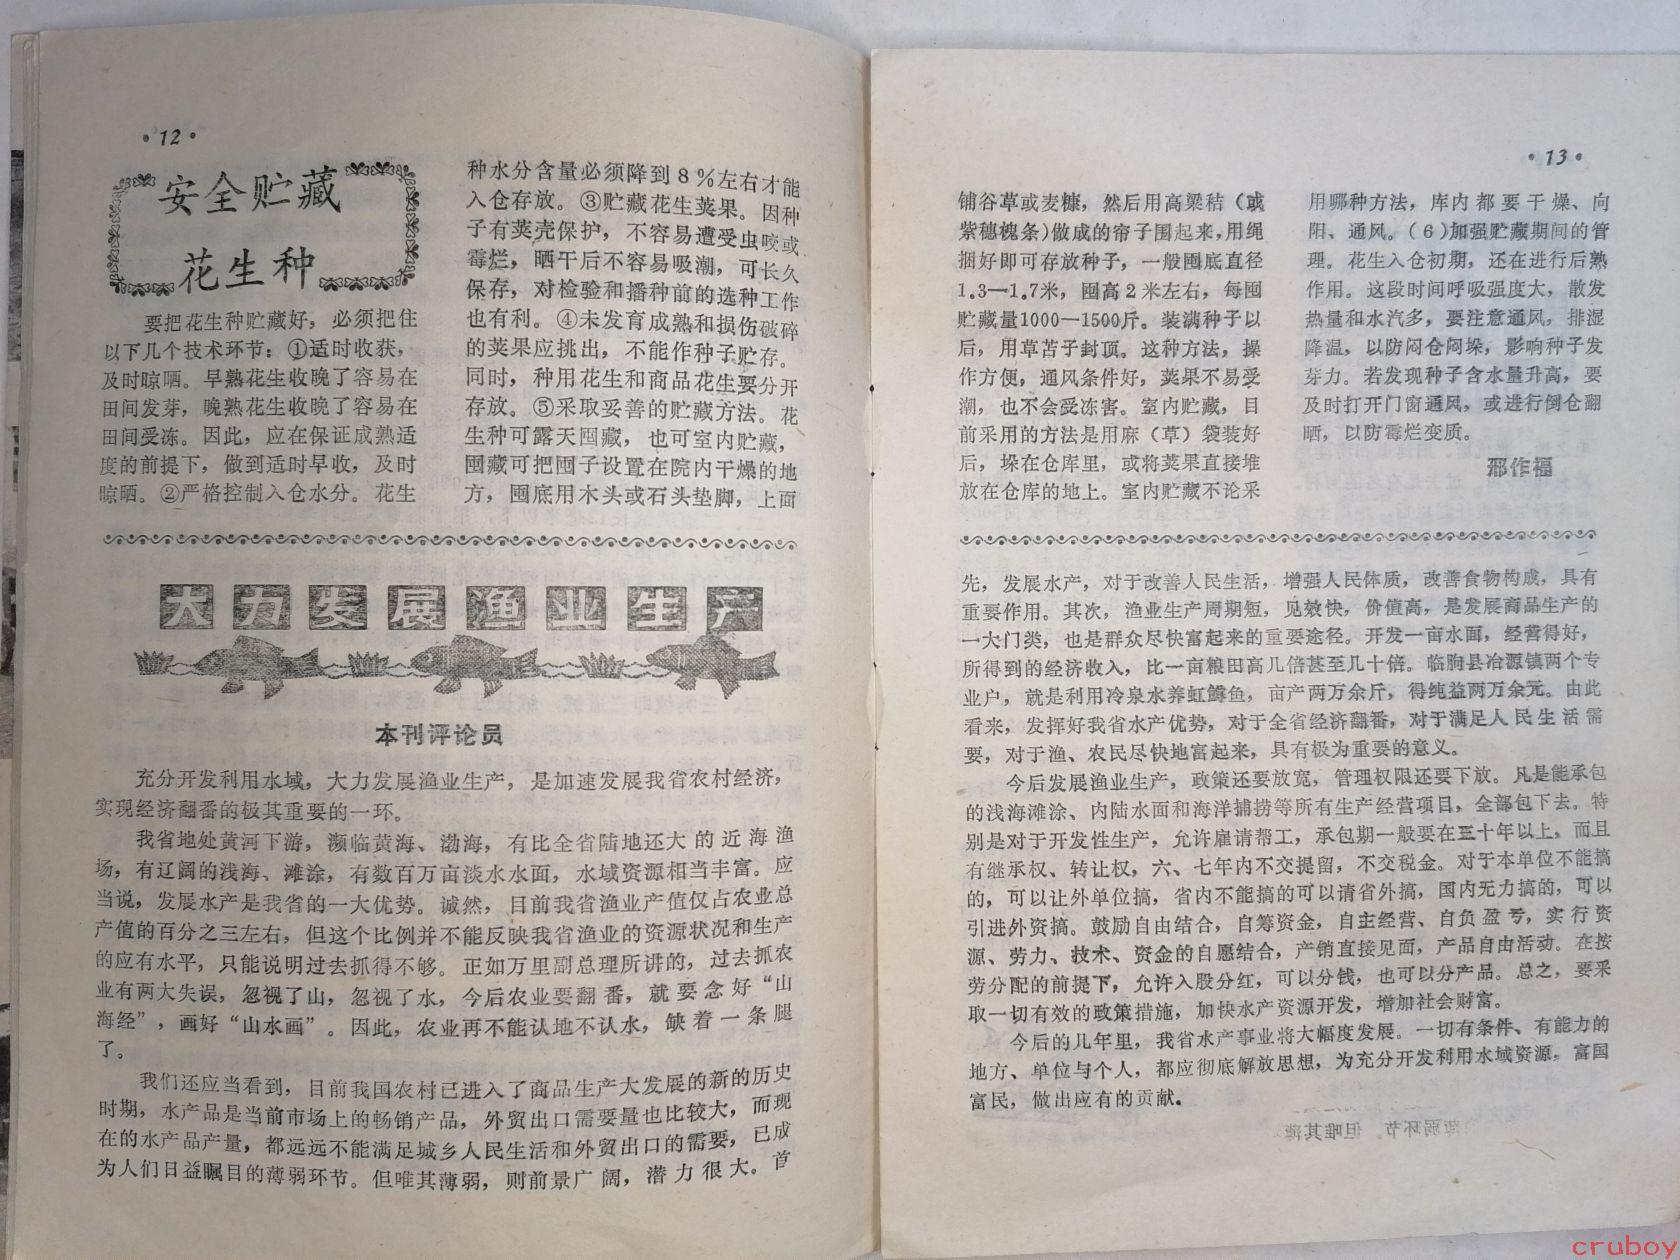 •12•
安全贮藏
花生种
要把花生种贮藏好，必须把住
以下几个技术环节：①适时收获，
及时晾晒。早熟花生收晚了容易在
田间发芽，晚熟花生收晚了容易在
田间受冻。因此，应在保证成熟适
度的前提下，做到适时早收，及时
晾晒。②严格控制入仓水分。花生
种水分含量必须降到8％左右才能
入仓存放。③贮藏花生荚果。因种
子有荚壳保护，不容易遭受虫咬或
霉烂，晒干后不容易吸潮，可长久
保存，对检验和播种前的选种工作
也有利。④未发育成熟和损伤破碎
的荚果应挑出，不能作种子贮存。
同时，种用花生和商品花生要分开
存放。⑤采取妥善的贮藏方法。花
生种可露天囤藏，也可室内贮藏，
囤藏可把囤子设置在院内干燥的地
方，囤底用木头或石头垫脚，上面
大力发展渔业生产
本刊评论员
充分开发利用水域，大力发展渔业生产，是加速发展我省农村经济，
实现经济翻番的极其重要的一环。
我省地处黄河下游，濒临黄海、渤海，有比全省陆地还大的近海渔
场，有辽阔的浅海、滩涂，有数百万亩淡水水面，水域资源相当丰富。应
当说，发展水产是我省的一大优势。诚然，目前我省渔业产值仅占农业总
产值的百分之三左右，但这个比例并不能反映我省渔业的资源状况和生产
的应有水平，只能说明过去抓得不够。正如万里副总理所讲的，过去抓农
业有两大失误，忽视了山，忽视了水，今后农业要翻番，就要念好“山
海经”，画好“山水画”。因此，农业再不能认地不认水，缺着一条腿
了。
我们还应当看到，目前我国农村已进入了商品生产大发展的新的历史
时期，水产品是当前市场上的畅销产品，外贸出口需要量也比较大，而现
在的水产品产量，都远远不能满足城乡人民生活和外贸出口的需要，已成
为人们日益瞩目的薄弱环节。但唯其薄弱，则前景广阔，潜力很大。首
•13•
铺谷草或麦糠，然后用高粱秸（或
紫穗槐条）做成的帘子围起来，用绳
捆好即可存放种子，一般囤底直径
1.3—1.7米，囤高2米左右，每囤
贮藏量1000—1500斤。装满种子以
后，用草苫子封顶。这种方法，操
作方便，通风条件好，荚果不易受
潮，也不会受冻害。室内贮藏，目
前采用的方法是用麻（草）袋装好
后，垛在仓库里，或将荚果直接堆
放在仓库的地上。室内贮藏不论采
用哪种方法，库内都要干燥、向
阳、通风。（6）加强贮藏期间的管
理。花生入仓初期，还在进行后熟
作用。这段时间呼吸强度大，散发
热量和水汽多，要注意通风，排湿
降温，以防闷仓闷垛，影响种子发
芽力。若发现种子含水量升高，要
及时打开门窗通风，或进行倒仓翻
晒，以防霉烂变质。
邢作福
先，发展水产，对于改善人民生活，增强人民体质，改善食物构成，具有
重要作用。其次，渔业生产周期短，见效快，价值高，是发展商品生产的
一大门类，也是群众尽快富起来的重要途径。开发一亩水面，经营得好，
所得到的经济收入，比一亩粮田高几倍甚至几十倍。临朐县冶源镇两个专
业户，就是利用冷泉水养虹鳟鱼，亩产两万余斤，得纯益两万余元。由此
看来，发挥好我省水产优势，对于全省经济翻番，对于满足人民生活需
要，对于渔、农民尽快地富起来，具有极为重要的意义。
今后发展渔业生产，政策还要放宽，管理权限还要下放。凡是能承包
的浅海滩涂、内陆水面和海洋捕捞等所有生产经营项目，全部包下去。特
别是对于开发性生产，允许雇请帮工，承包期一般要在三十年以上，而且
有继承权、转让权，六、七年内不交提留，不交税金。对于本单位不能搞
的，可以让外单位搞，省内不能搞的可以请省外搞，国内无力搞的，可以
引进外资搞。鼓励自由结合，自筹资金，自主经营、自负盈亏，实行资
源、劳力、技术、资金的自愿结合，产销直接见面，产品自由活动。在按
劳分配的前提下，允许入股分红，可以分钱，也可以分产品。总之，要采
取一切有效的政策措施，加快水产资源开发，增加社会财富。
今后的几年里，我省水产事业将大幅度发展。一切有条件、有能力的
地方、单位与个人，都应彻底解放思想，为充分开发利用水域资源，富国
富民，做出应有的贡献。
cruboy